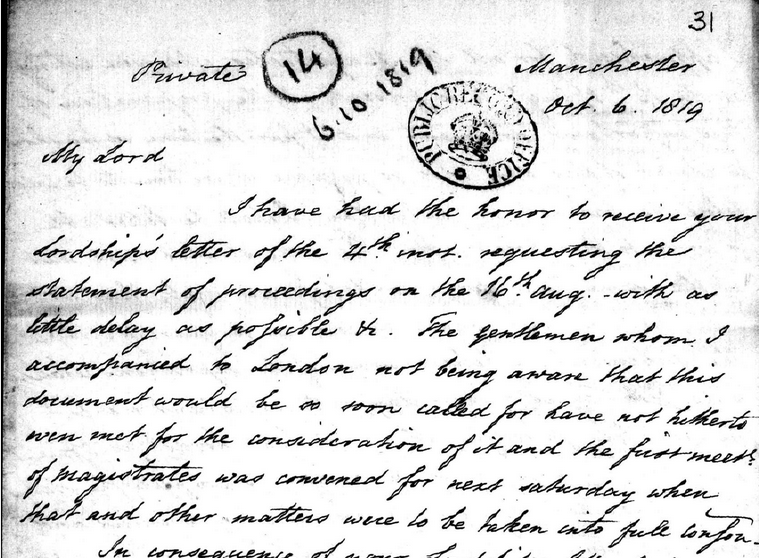 31
Private
14
6.10 1819
PUBLIC RECORD OFFICE
Manchester
Oct. 6. 1819
My Lord
I have had the honor to receive your
Lordship's letter of the 4th inst. requesting the
statement of proceedings on the 16th Aug. - with as
little delay as possible &c. The gentlemen whom I
accompanied to London not being aware that this
document would be so soon called for have not hitherto
even met for the consideration of it and the first meetg.
of Magistrates was convened for next Saturday when
that and other matters were to be taken into full
In consequence of your